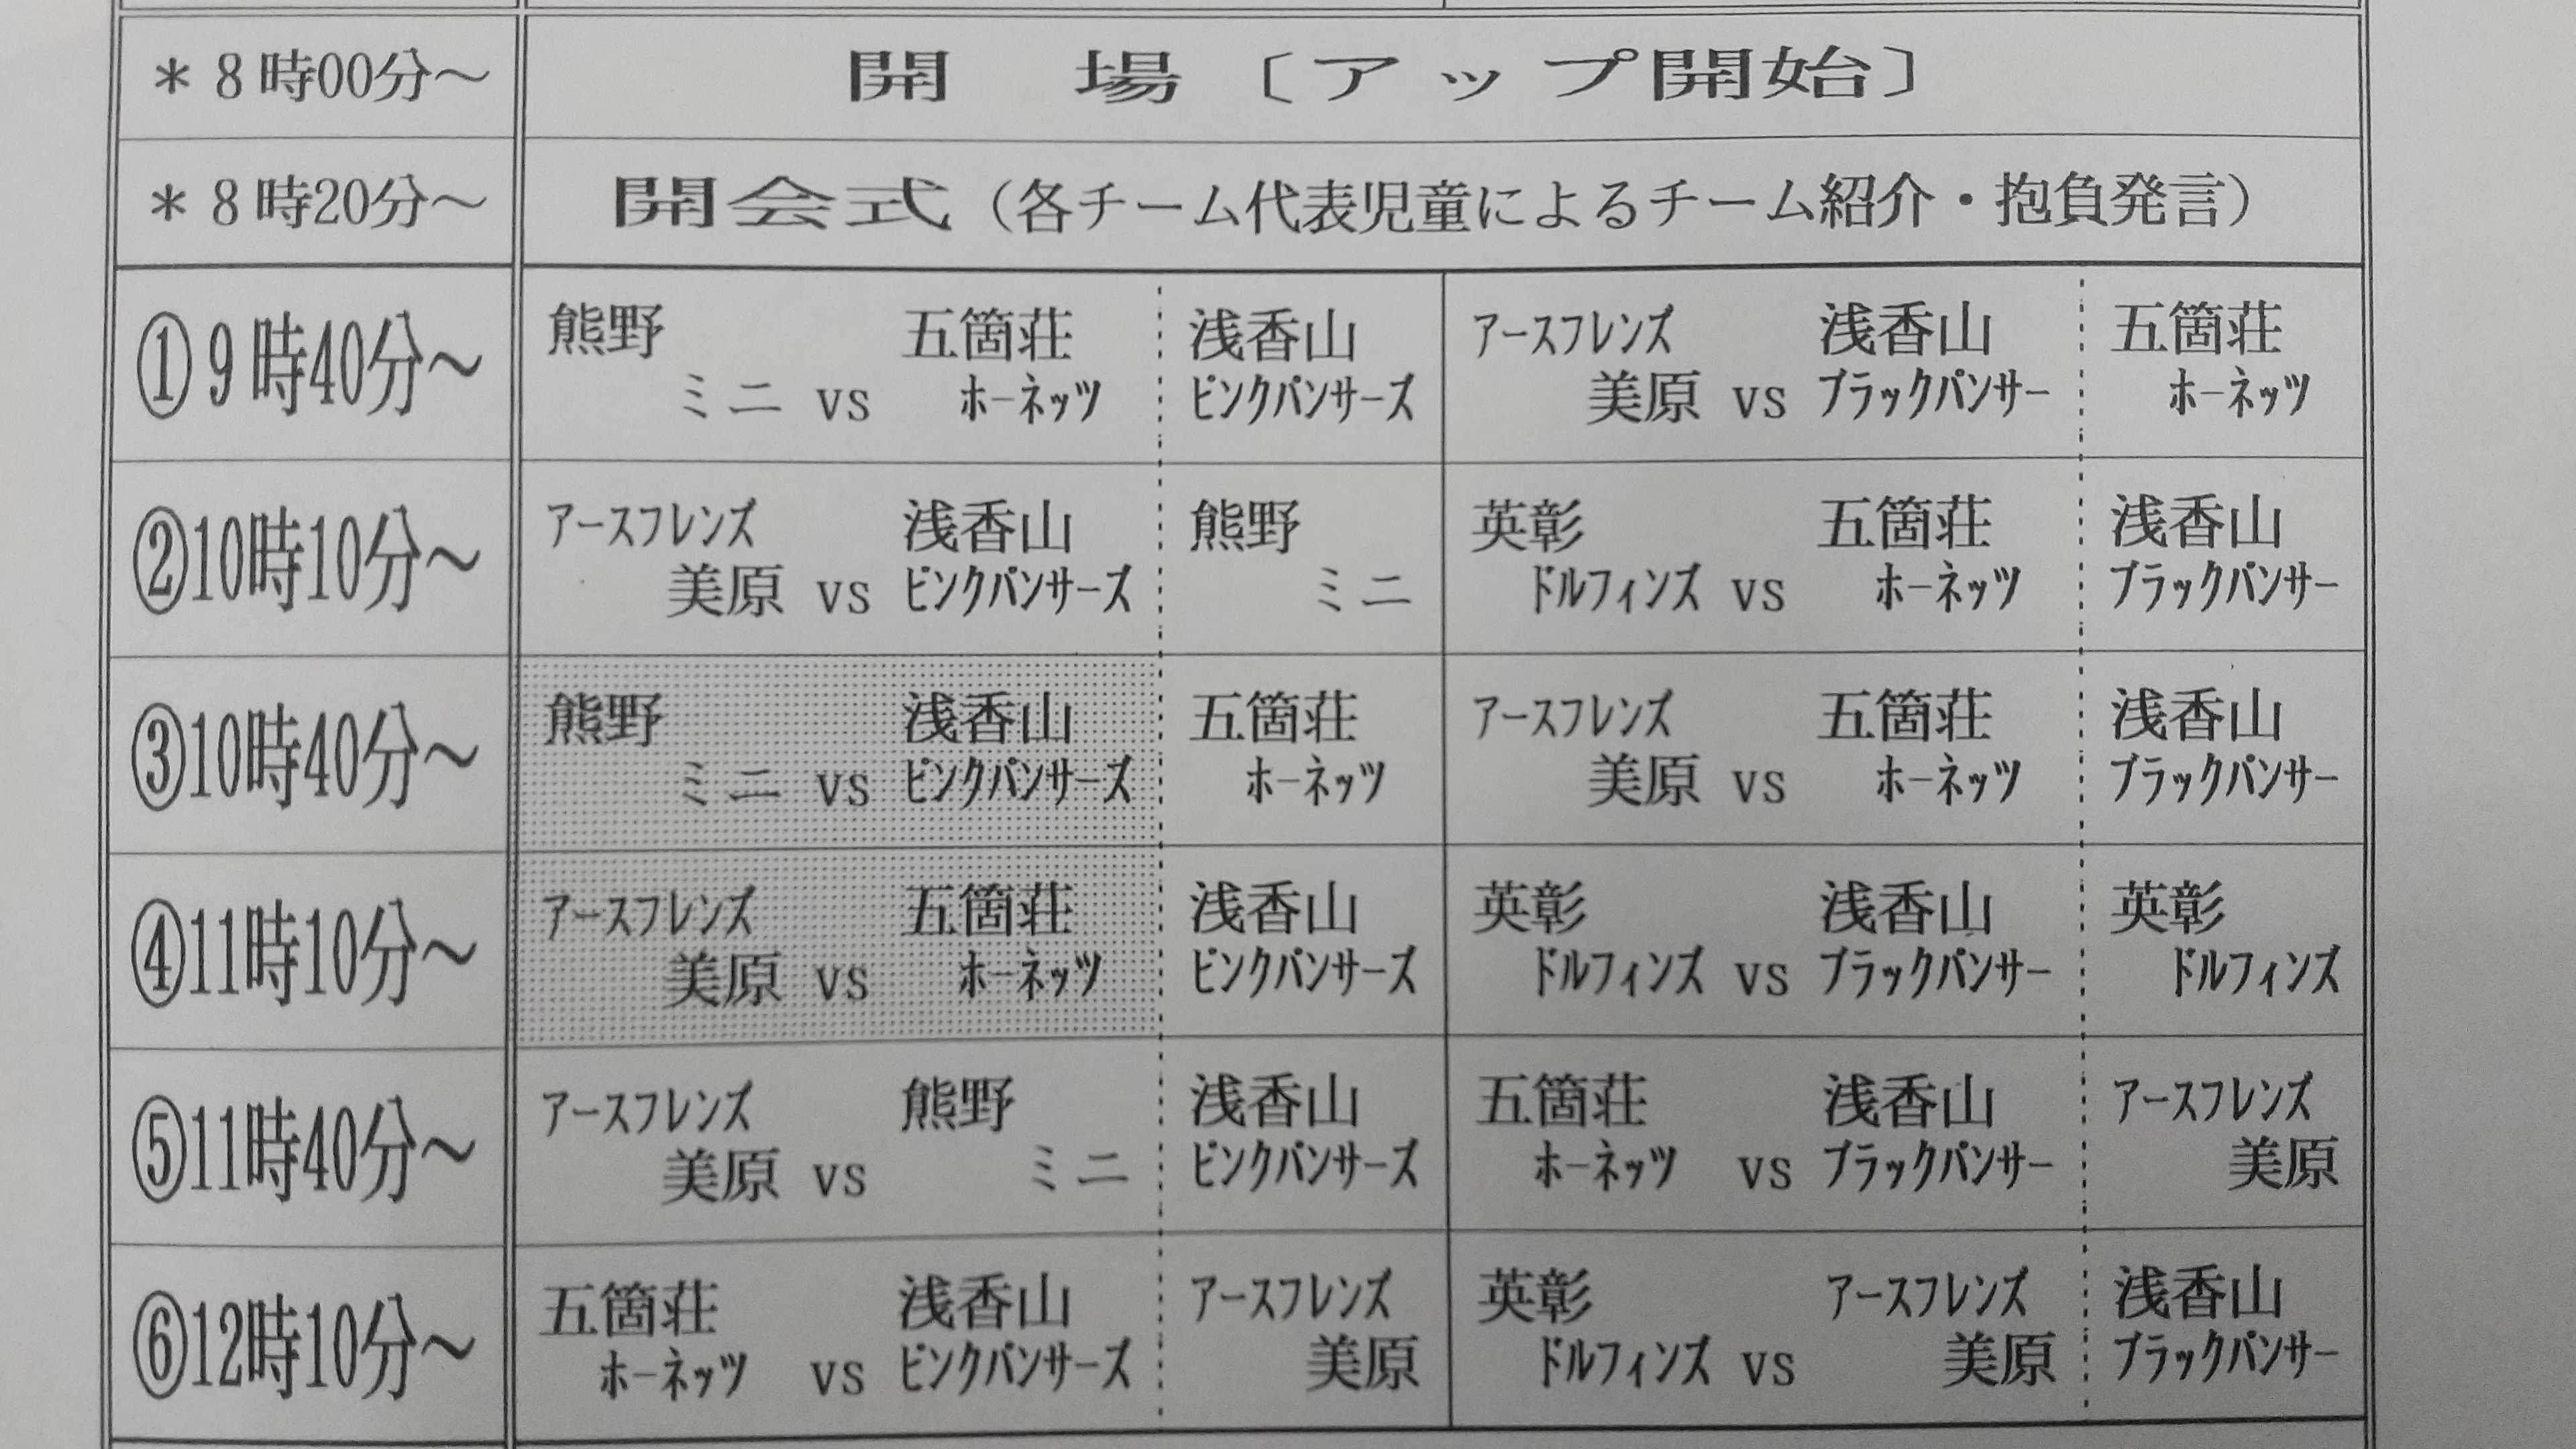 ＊8時00分～ 開 場〔アップ開始〕
＊8時20分～ 開会式（各チーム代表児童によるチーム紹介・抱負発言）
熊野 五箇荘 浅香山 アースフレンズ 浅香山 五箇荘
①9時40分～ ミニ vs ホーネッツ ピンクパンサーズ 美原 vs ブラックパンサー ホーネッツ
アースフレンズ 浅香山 熊野 英彰 五箇荘 浅香山
②10時10分～ 美原 vs ピンクパンサーズ ミニ ドルフィンズ vs ホーネッツ ブラックパンサー
熊野 浅香山 五箇荘 アースフレンズ 五箇荘 浅香山
③10時40分～ ミニ vs ピンクパンサーズ ホーネッツ 美原 vs ホーネッツ ブラックパンサー
アースフレンズ 五箇荘 浅香山 英彰 浅香山 英彰
④11時10分～ 美原 vs ホーネッツ ピンクパンサーズ ドルフィンズ vs ブラックパンサー ドルフィンズ
アースフレンズ 熊野 浅香山 五箇荘 浅香山 アースフレンズ
⑤11時40分～ 美原 vs ミニ ピンクパンサーズ ホーネッツ vs ブラックパンサー 美原
五箇荘 浅香山 アースフレンズ 英彰 アースフレンズ 浅香山
⑥12時10分～ ホーネッツ vs ピンクパンサーズ 美原 ドルフィンズ vs 美原 ブラックパンサー